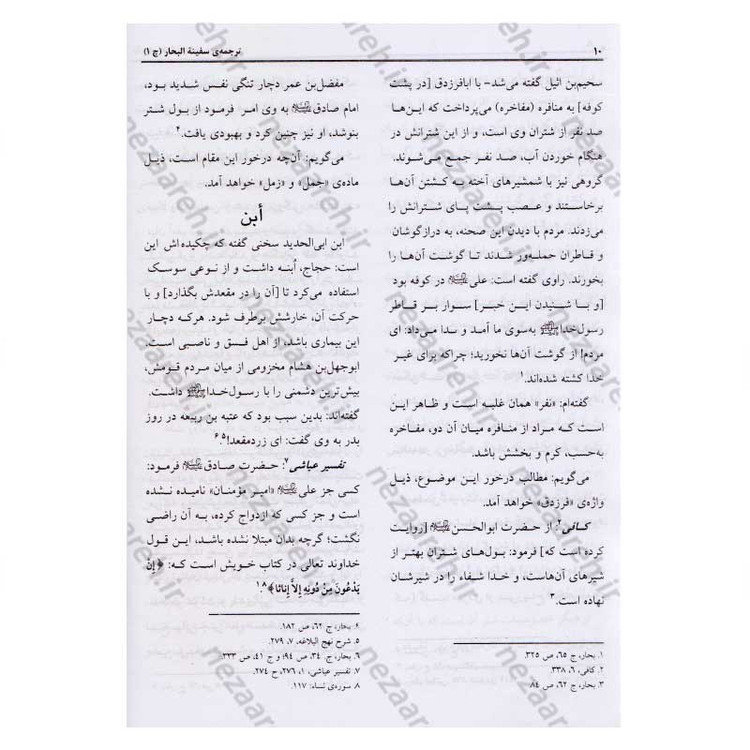 ۱۰
ترجمه‌ی سفینة البحار (ج ۱)
سحیم‌بن اثیل گفته می‌شد- با ابافرزدق [در پشت
کوفه] به منافره (مفاخره) می‌پرداخت که این‌ها
صد نفر از شتران وی است، و از این شترانش در
هنگام خوردن آب، صد نفر جمع می‌شوند.
گروهی نیز با شمشیرهای آخته به کشتن آن‌ها
برخاستند و عصب پشت پای شترانش را
می‌زدند. مردم با دیدن این صحنه، به درازگوشان
و قاطران حمله‌ور شدند تا گوشت آن‌ها را
بخورند. راوی گفته است: علی در کوفه بود
[و با شنیدن این خبر] سوار بر قاطر
رسول‌خدا به‌سوی ما آمد و ندا می‌داد: ای
مردم! از گوشت آن‌ها نخورید؛ چراکه برای غیر
خدا کشته شده‌اند.۱
گفته‌ام: «نفر» همان غلبه است و ظاهر این
است که مراد از منافره میان آن دو، مفاخره
به‌حسب، کرم و بخشش باشد.
می‌گویم: مطالب درخور این موضوع، ذیل
واژه‌ی «فرزدق» خواهد آمد.
کافی۲: از حضرت ابوالحسن [روایت
کرده است که] فرمود: بول‌های شتران بهتر از
شیرهای آن‌هاست، و خدا شفاء را در شیرشان
نهاده است.۳
۱. بحار، ج ۶۵، ص ۳۲۵.
۲. کافی، ۶، ۳۳۸.
۳. بحار، ج ۶۲، ص ۸۴
مفضل‌بن عمر دچار تنگی نفس شدید بود،
امام صادق به وی امر فرمود از بول شتر
بنوشد، او نیز چنین کرد و بهبودی یافت.۴
می‌گویم: آن‌چه درخور این مقام است، ذیل
ماده‌ی «جمل» و «زمل» خواهد آمد.
أبن
ابن ابی‌الحدید سخنی گفته که چکیده‌اش این
است: حجاج، اُبنه داشت و از نوعی سوسک
استفاده می‌کرد تا [آن را در مقعدش بگذارد] و با
حرکت آن، خارشش برطرف شود. هرکه دچار
این بیماری باشد، از اهل فسق و ناصبی است،
ابوجهل‌بن هشام مخزومی از میان مردم قومش،
بیش‌ترین دشمنی را با رسول‌خدا داشت.
گفته‌اند: بدین سبب بود که عتبه بن ربیعه در روز
بدر به وی گفت: ای زردمقعد!۵،۶
تفسیر عیاشی۷: حضرت صادق فرمود:
کسی جز علی «امیر مؤمنان» نامیده نشده
است و جز کسی که ازدواج کرده، به آن راضی
نگشت؛ گرچه بدان مبتلا نشده باشد، این قول
خداوند تعالی در کتاب خویش است که: ﴿إِنْ
يَدْعُونَ مِنْ دُونِهِ إِلاَّ إِنَاثًا﴾.۸
۴. بحار، ج ۶۲، ص ۱۸۲.
۵. شرح نهج البلاغه، ۷، ۲۷۹.
۶. بحار، ج ۳۴، ص ۹۴؛ و ج ۴۱، ص ۳۳۳.
۷. تفسیر عیاشی، ۱، ۲۷۶، ح ۲۷۴.
۸. سوره‌ی نساء: ۱۱۷.
nezaareh.ir